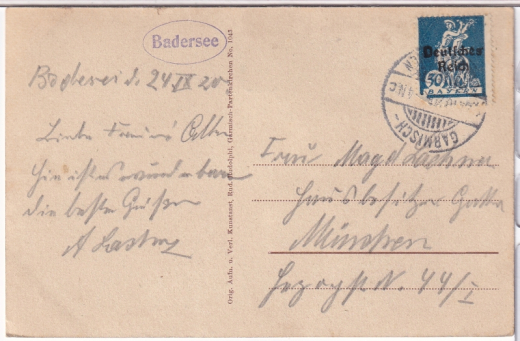 Badersee
Badersee d. 24 IX 20
Liebe
Hier ist es wunderbar
die besten Grüßen
A
Orig. Aufn. u. Verl. Kunstanst. Rud. Rudolphi, Garmisch-Partenkirchen No. 1043
Deutsches
Reich
50
BAYERN
GARMISCH-
Frau Magd
Hausbesitzers Gattin
München
Herzogst N. 44/I